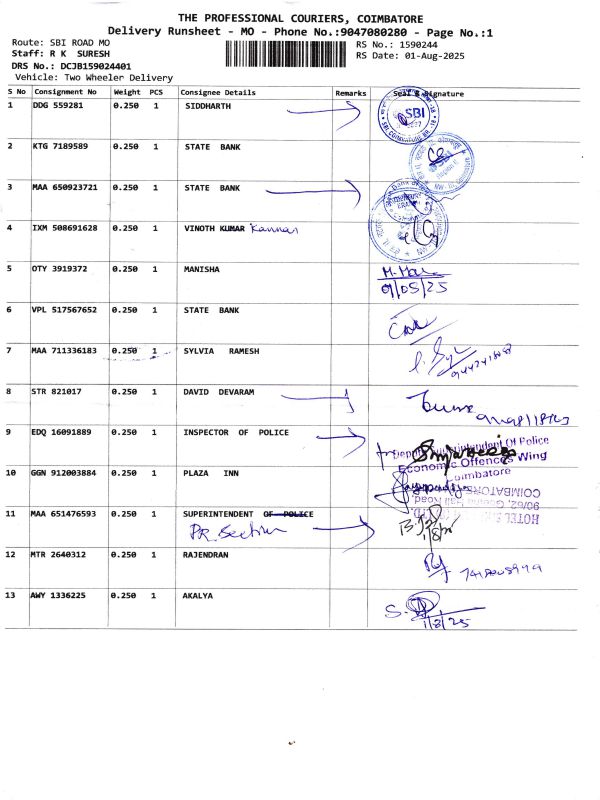 THE PROFESSIONAL COURIERS, COIMBATORE
Delivery Runsheet - MO - Phone No.:9047080280 - Page No.:1
Route: SBI ROAD MO
RS No.: 1590244
Staff: R K SURESH
RS Date: 01-Aug-2025
DRS No.: DCJB159024401
Vehicle: Two Wheeler Delivery
S No Consignment No Weight PCS Consignee Details Remarks Seal & Signature
1 DDG 559281 0.250 1 SIDDHARTH
SBI
2 KTG 7189589 0.250 1 STATE BANK
3 MAA 650923721 0.250 1 STATE BANK
4 IXM 508691628 0.250 1 VINOTH KUMAR Kannan
5 OTY 3919372 0.250 1 MANISHA
6 VPL 517567652 0.250 1 STATE BANK
7 MAA 711336183 0.250 1 SYLVIA RAMESH
8 STR 821017 0.250 1 DAVID DEVARAM
9 EDQ 16091889 0.250 1 INSPECTOR OF POLICE
Deputy Superintendent Of Police
Economic Offences Wing
Coimbatore
10 GGN 912003884 0.250 1 PLAZA INN
COIMBATORE
11 MAA 651476593 0.250 1 SUPERINTENDENT OF POLICE
PR. Section
12 MTR 2640312 0.250 1 RAJENDRAN
13 AWY 1336225 0.250 1 AKALYA
1/8/25